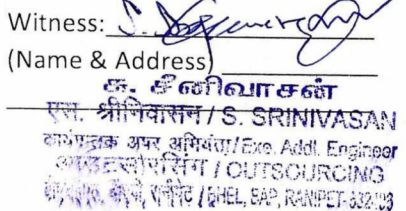 Witness:
(Name & Address)
சு. சீனிவாசன்
एस. श्रीनिवासन / S. SRINIVASAN
कार्यपालक अपर अभियंता / Exe. Addl. Engineer
आउटसोरसिंग / OUTSOURCING
रानीपेट / BHEL, BAP, RANIPET-632406